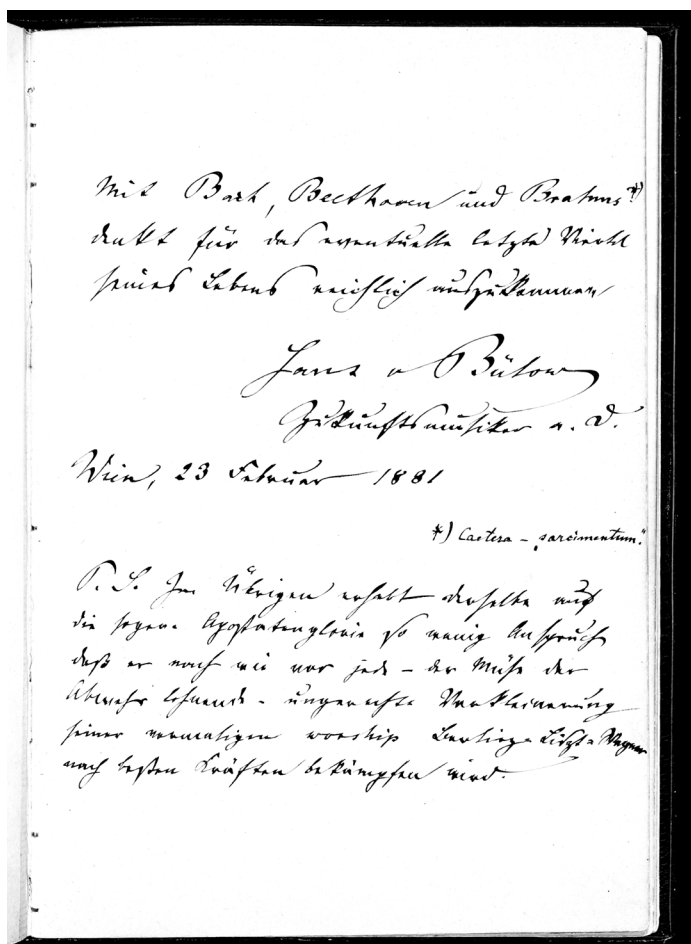 Mit Bach, Beethoven und Brahms *)
denkt für das eventuelle letzte Viertel
seines Lebens reichlich auszukommen
Hans v Bülow
Zukunftsmusiker a. D.
Wien, 23 Februar 1881
*) Caetera – „sarcimentum."
P. S. Im Übrigen erhebt derselbe auf
die sogen. Apostatenglorie so wenig Anspruch
daß er nach wie vor jede – der Mühe der
Abwehr lohnende – ungerechte Verkleinerung
seiner vormaligen worship Berlioz-Liszt-Wagner
nach besten Kräften bekämpfen wird.